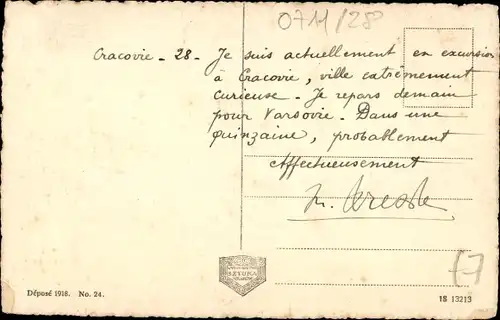 0711/28
Cracovie - 28 - Je suis actuellement en excursion
à Cracovie, ville extrêmement
curieuse - Je repars demain
pour Varsovie. Dans une
quinzaine, probablement
Affectueusement
SZTUKA
Déposé 1918. No. 24.
1S 13213